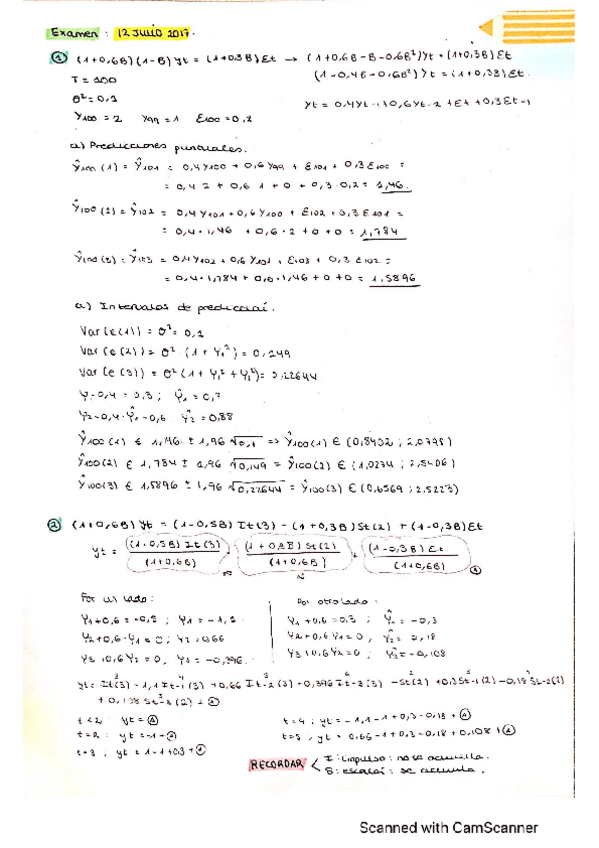 Examen : 12 Junio 2017.
① (1+0,6B)(1-B) yt = (1+0,3B)Et → (1+0,6B-B-0,6B²)yt = (1+0,3B)Et
T = 100
(1-0,4B-0,6B²)yt = (1+0,3B)Et
σ² = 0,1
yt = 0,4yt-1+0,6yt-2+Et+0,3Et-1
y100 = 2 y99 = 1 E100 = 0,2
a) Predicciones puntuales.
ŷ100(1) = ŷ101 = 0,4y100 + 0,6y99 + E101 + 0,3E100 =
= 0,4·2 + 0,6·1 + 0 + 0,3·0,2 = 1,46.
ŷ100(2) = ŷ102 = 0,4y101 + 0,6y100 + E102 + 0,3E101 =
= 0,4·1,46 + 0,6·2 + 0 + 0 = 1,784
ŷ100(3) = ŷ103 = 0,4y102 + 0,6y101 + E103 + 0,3E102 =
= 0,4·1,784 + 0,6·1,46 + 0 + 0 = 1,5896
a) Intervalos de predicción.
Var(e(1)) = σ² = 0,1
Var(e(2)) = σ²(1+Ψ1²) = 0,149
Var(e(3)) = σ²(1+Ψ1²+Ψ2²) = 0,22644
Ψ1-0,4 = 0,3 ; Ψ̂1 = 0,7
Ψ2-0,4·Ψ̂1-0,6 Ψ̂2 = 0,88
ŷ100(1) ∈ 1,46 ± 1,96 √0,1 => ŷ100(1) ∈ (0,8402 ; 2,0798)
ŷ100(2) ∈ 1,784 ± 1,96 √0,149 = ŷ100(2) ∈ (1,0274 ; 2,5406)
ŷ100(3) ∈ 1,5896 ± 1,96 √0,22644 = ŷ100(3) ∈ (0,6569 ; 2,5223)
② (1+0,6B) yt = (1-0,5B) It(3) - (1+0,3B) St(2) + (1-0,3B)Et
yt = (1-0,5B) It(3) / (1+0,6B) - (1+0,3B) St(2) / (1+0,6B) + (1-0,3B) Et / (1+0,6B)
Por un lado : Por otro lado :
Ψ1+0,6 = -0,5 ; Ψ1 = -1,1 Ψ1+0,6 = 0,3 ; Ψ̂1 = -0,3
Ψ2+0,6·Ψ1 = 0 ; Ψ2 = 0,66 Ψ2+0,6Ψ1 = 0 , Ψ̂2 = 0,18
Ψ3+0,6Ψ2 = 0 , Ψ3 = -0,396. Ψ3+0,6Ψ2 = 0 ; Ψ̂3 = -0,108
yt = It(3) - 1,1 It-1(3) + 0,66 It-2(3) - 0,396 It-3(3) - St(2) + 0,3St-1(2) - 0,18 St-2(2)
+ 0,108 St-3(2) + Ⓐ
t<2 yt = Ⓐ t=4 ; yt = -1,1-1+0,3-0,18+Ⓐ
t=2 ; yt = -1+Ⓐ t=5 , yt = 0,66-1+0,3-0,18+0,108+Ⓐ
t=3 ; yt = 1-1+0,3+Ⓐ
RECORDAR < I : impulso : no se acumula.
S : escalón : se acumula.
Scanned with CamScanner